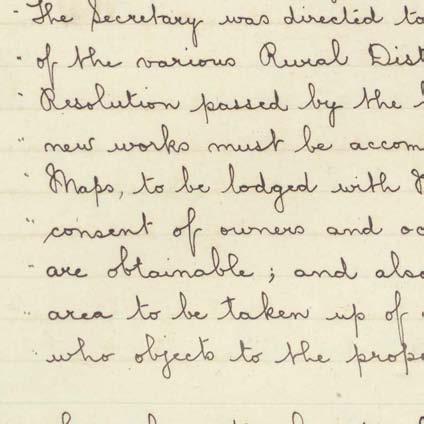 The Secretary was directed to
of the various Rural Dist
Resolution passed by the
new works must be accom
Maps, to be lodged with
consent of owners and oc
are obtainable; and also
area to be taken up of
who objects to the propo